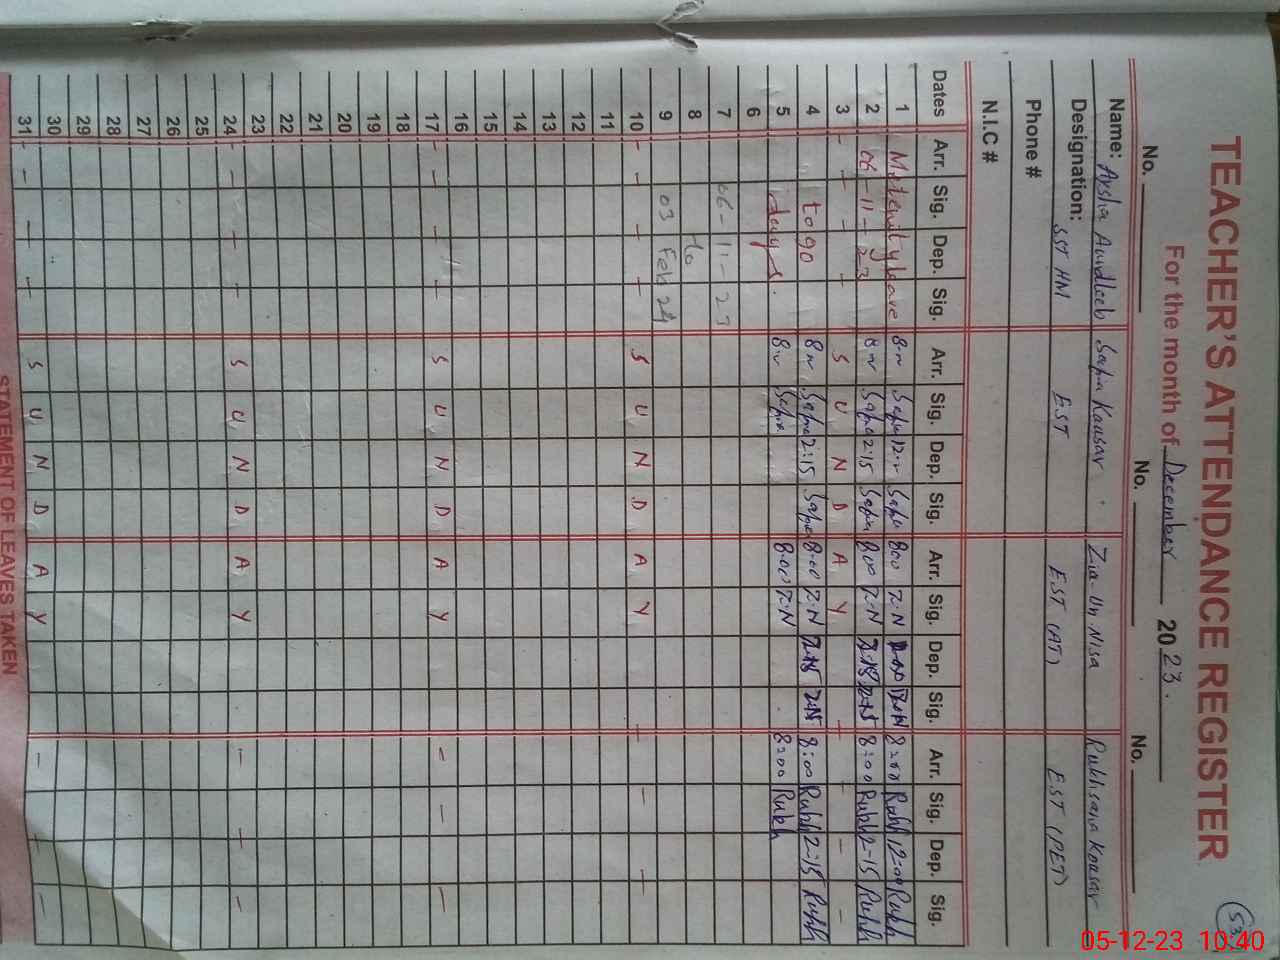 53
TEACHER'S ATTENDANCE REGISTER
For the month of December 2023.
No. No. No.
Name: Aysha Aundleeb Safia Kousar Zia-Un Nisa Rukhsana Kousar
Designation: SST HM EST EST (AT) EST (PET)
Phone #
N.I.C #
Dates Arr. Sig. Dep. Sig. Arr. Sig. Dep. Sig. Arr. Sig. Dep. Sig. Arr. Sig. Dep. Sig.
1 Maternity leave Safia Safia 800 Z:N 8:00 Rukh 12:00 Rukh
2 06-11-23 Safia 2:15 Safia 800 Z:N 8:00 Rukh 2-15 Rukh
3 - - - - S U N D A Y - - - -
4 to 90 Safia 2:15 Safia 8:00 Z:N 2:15 8:00 Rukh 2-15 Rukh
5 days. Safia 8:00 Z:N 8:00 Rukh
6
7 06-11-23
8 to
9 03 Feb 24
10 - - - - S U N D A Y - - -
11
12
13
14
15
16
17 - - - - S U N D A Y - - -
18
19
20
21
22
23
24 - - - - S U N D A Y - - -
25
26
27
28
29
30
31 - - - - S U N D A Y - - -
STATEMENT OF LEAVES TAKEN
05-12-23 10:40